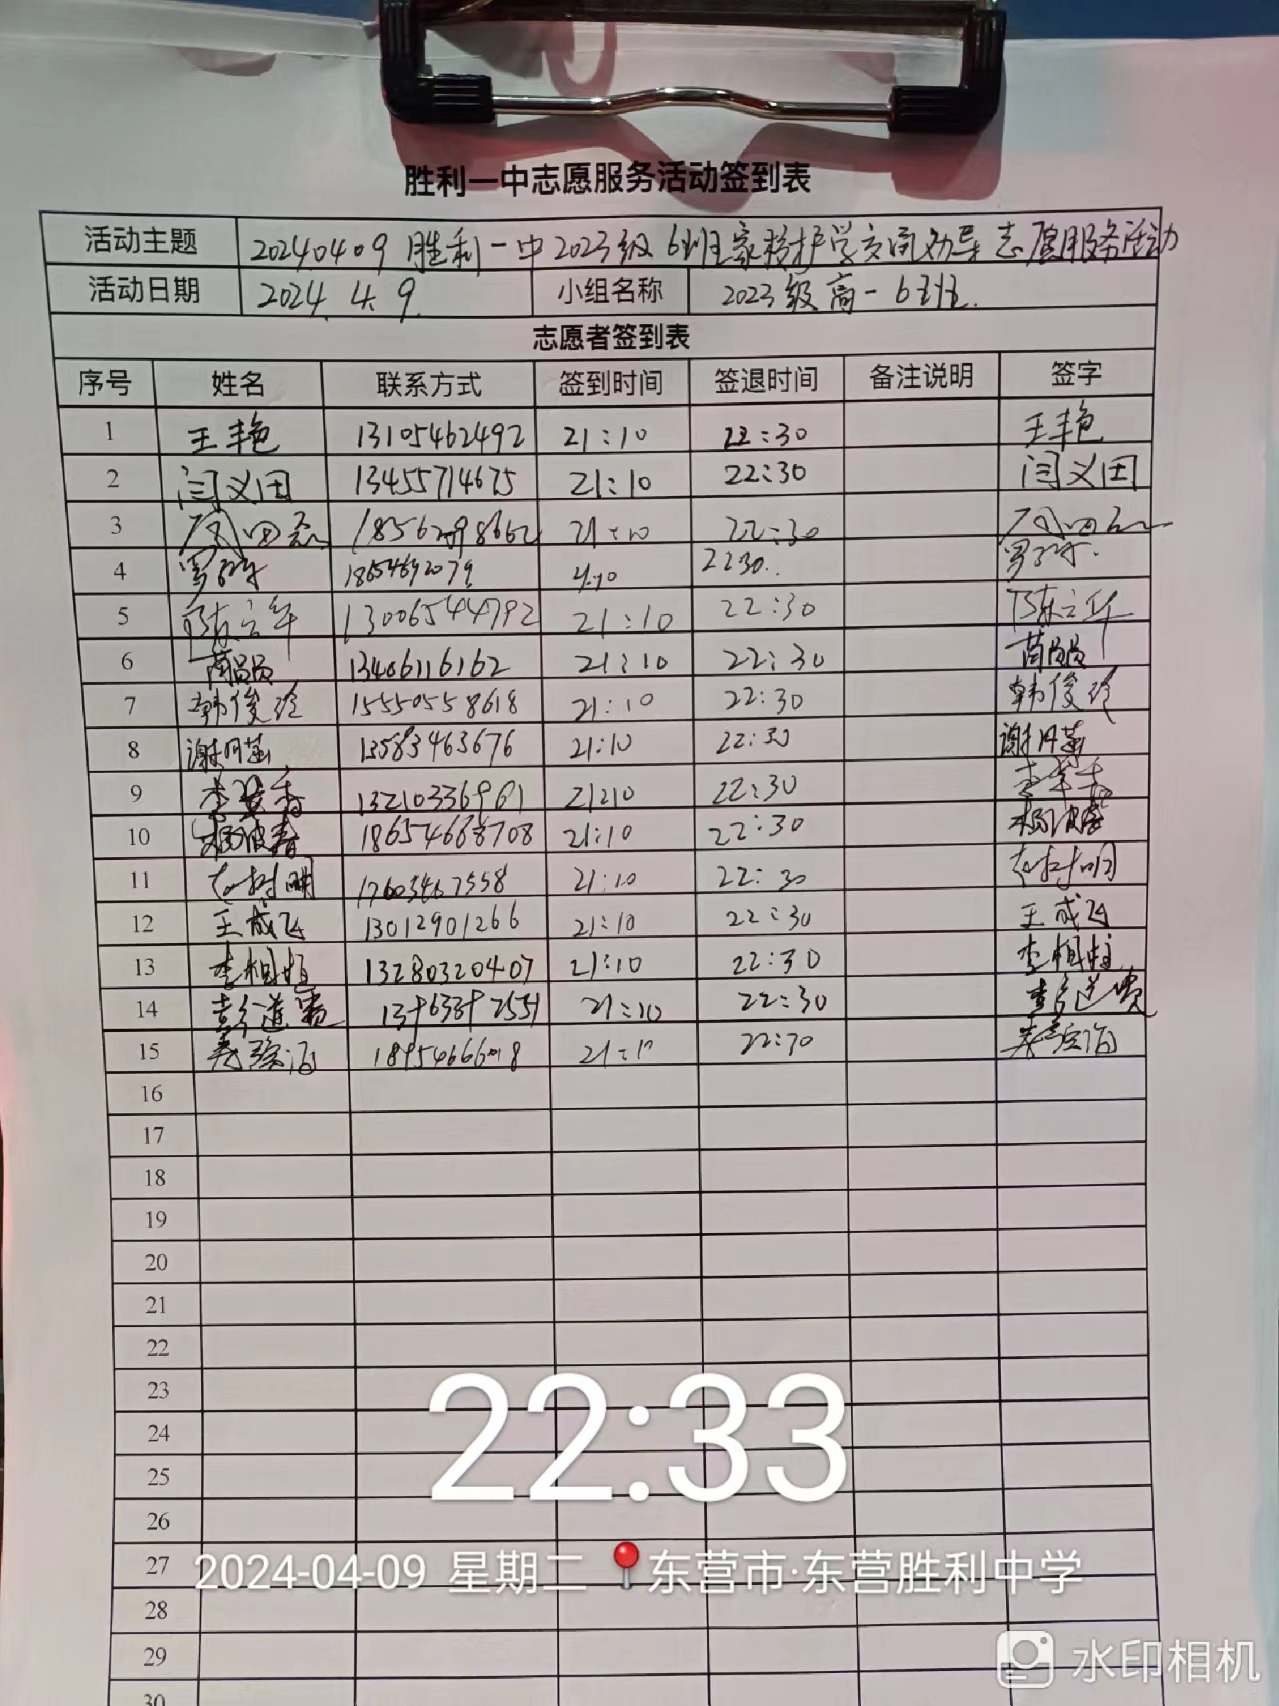 胜利一中志愿服务活动签到表
活动主题 20240409 胜利一中2023级6班家长护学交通劝导志愿服务活动
活动日期 2024.4.9. 小组名称 2023级高一6班.
志愿者签到表
序号 姓名 联系方式 签到时间 签退时间 备注说明 签字
1 王丰艳 13105462492 21:10 22:30 王丰艳
2 闫义田 13455714675 21:10 22:30 闫义田
3 21:10 22:30
4 18654692079 2230..
5 陈立华 13006544792 21:10 22:30 陈立华
6 13406116162 21:10 22:30
7 韩俊玲 15550558618 21:10 22:30 韩俊玲
8 谢月 13583463676 21:10 22:30 谢月
9 李 13210336961 21210 22:30 李
10 杨波春 18654668708 21:10 22:30 杨波春
11 树明 17603467558 21:10 22:30 树明
12 王成飞 13012901266 21:10 22:30 王成飞
13 李相柱 13280320407 21:10 22:30 李相柱
14 彭道 21:10 22:30 彭道
15 22:30
16
17
18
19
20
21
22
23
24
25
26
27
28
29
30
22:33
2024-04-09 星期二 东营市·东营胜利中学
水印相机